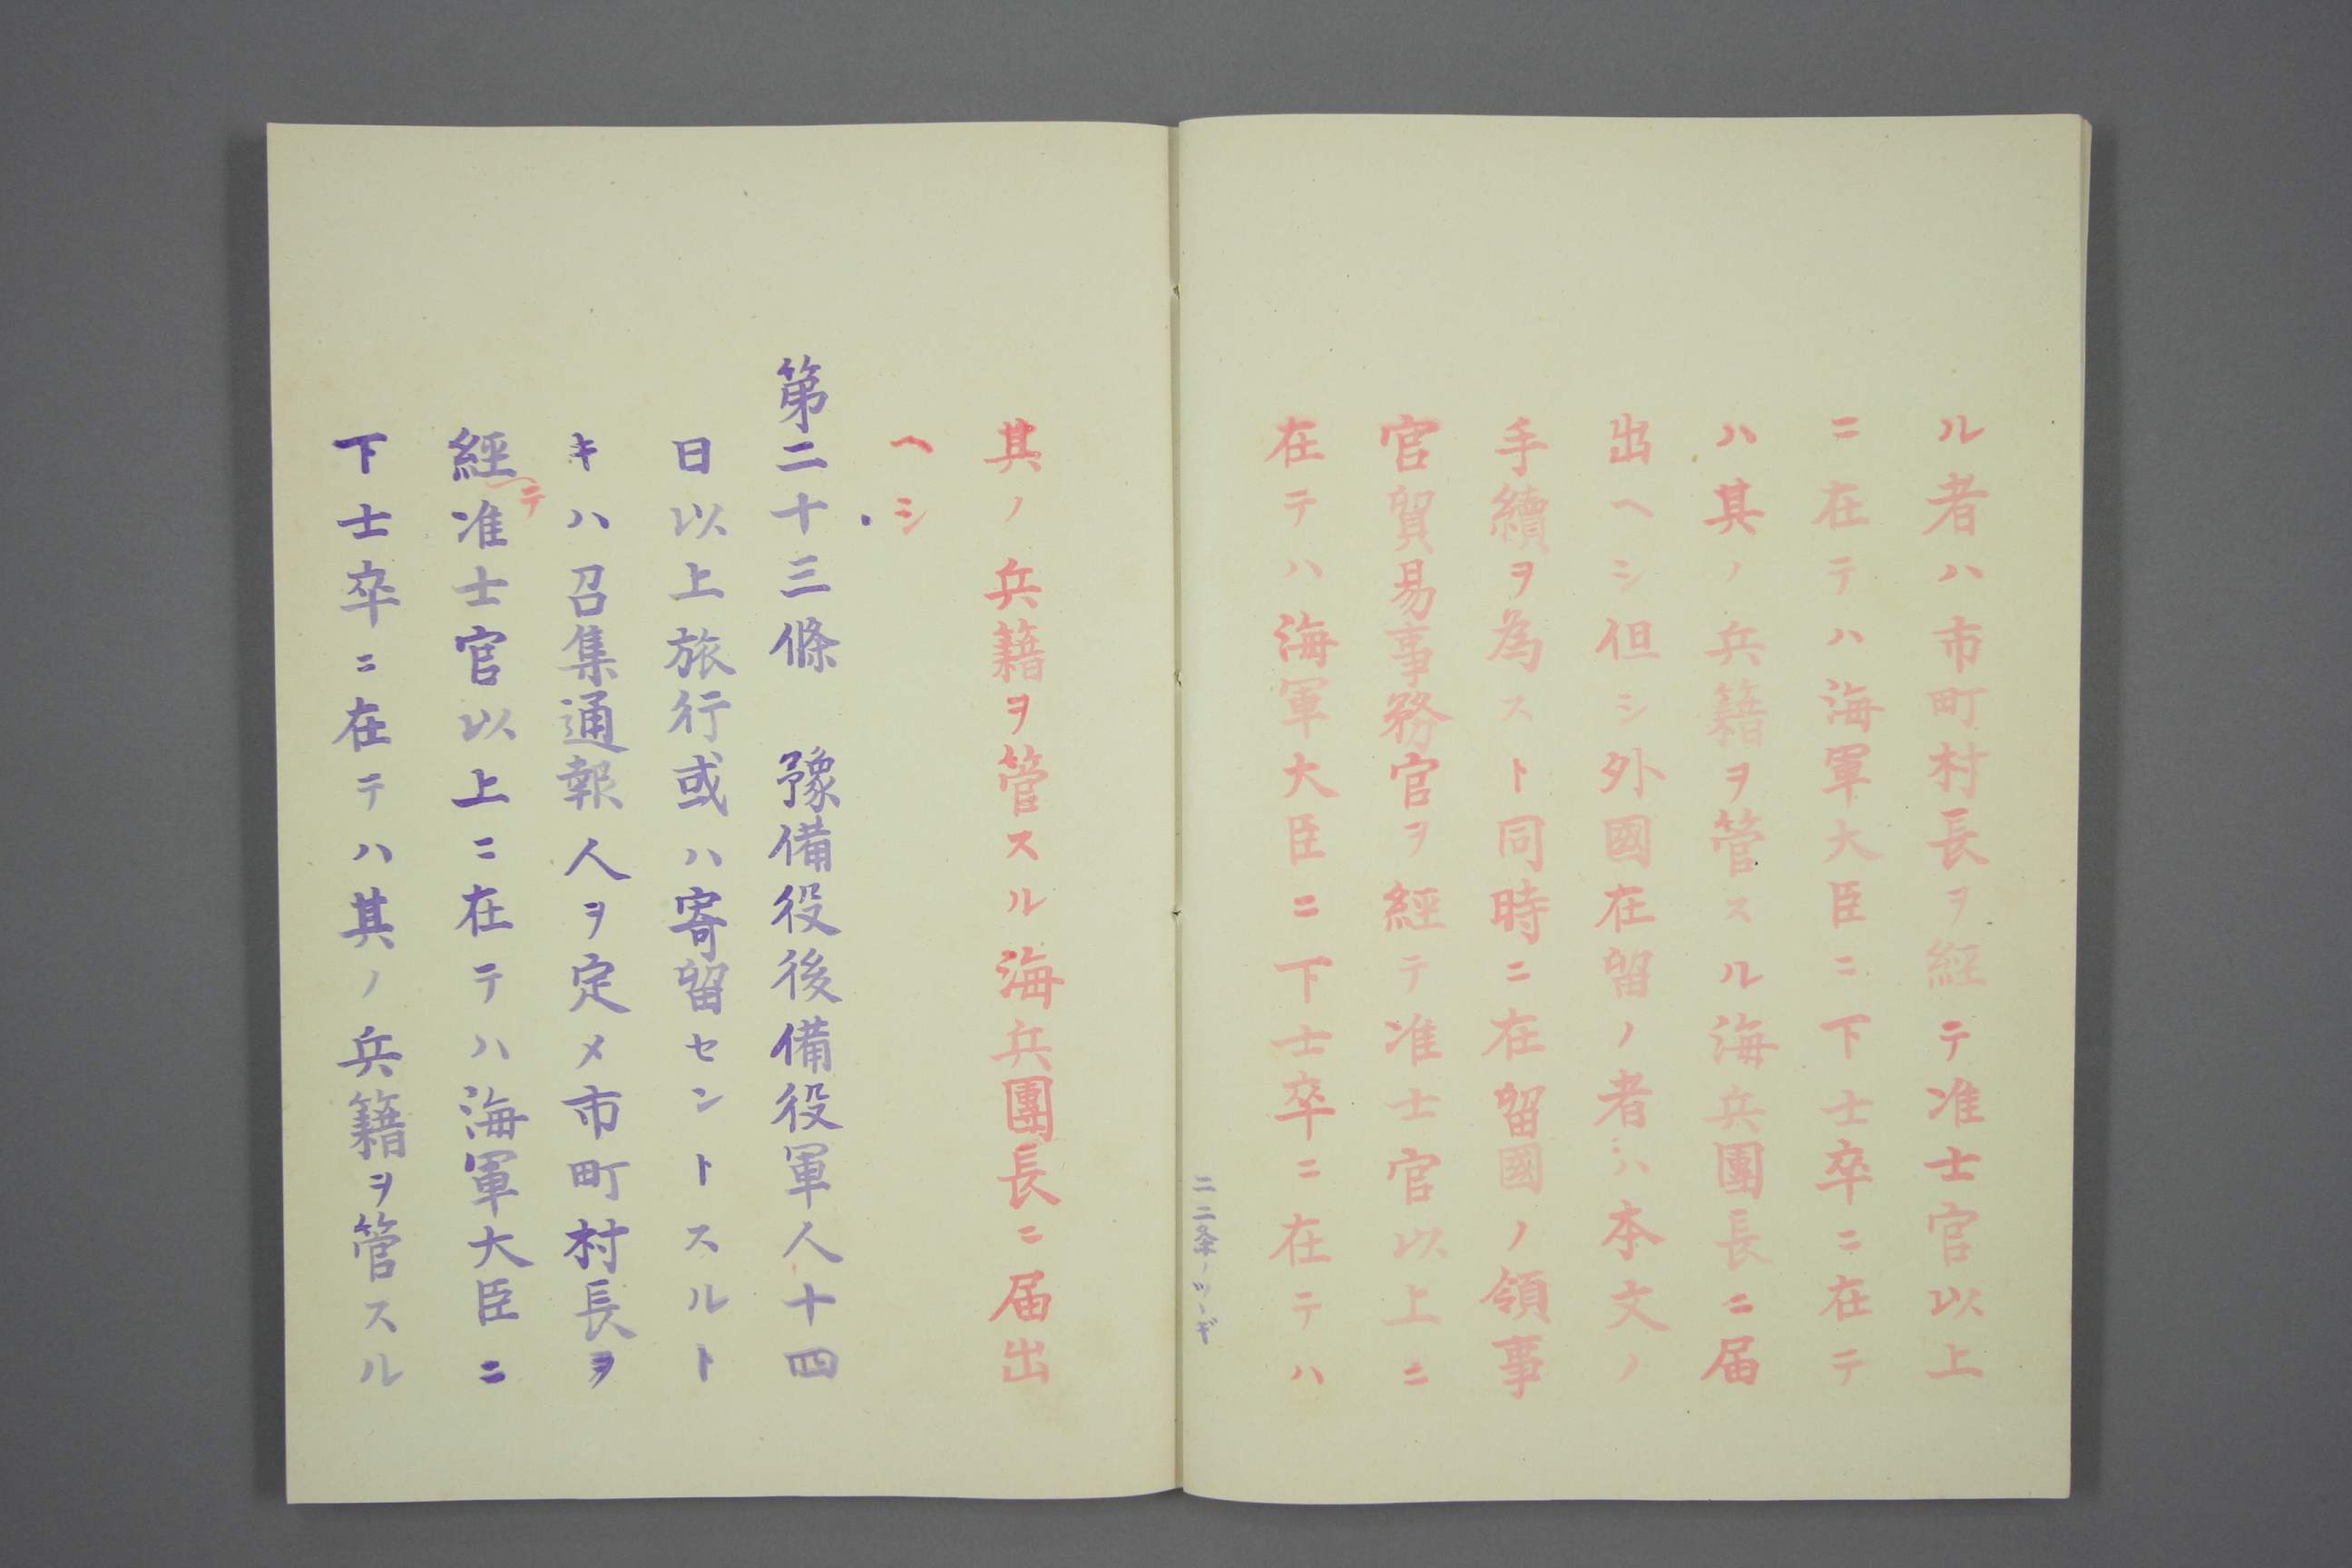 ル者ハ市町村長ヲ經テ准士官以上
ニ在テハ海軍大臣ニ下士卒ニ在テ
ハ其ノ兵籍ヲ管スル海兵團長ニ届
出ヘシ但シ外國在留ノ者ハ本文ノ
手續ヲ為スト同時ニ在留國ノ領事
官貿易事務官ヲ經テ准士官以上ニ
在テハ海軍大臣ニ下士卒ニ在テハ
二二条ノツヽギ
其ノ兵籍ヲ管スル海兵團長ニ届出
ヘシ
第二十三條 豫備役後備役軍人十四
日以上旅行或ハ寄留セントスルト
キハ召集通報人ヲ定メ市町村長ヲ
經テ准士官以上ニ在テハ海軍大臣ニ
下士卒ニ在テハ其ノ兵籍ヲ管スル